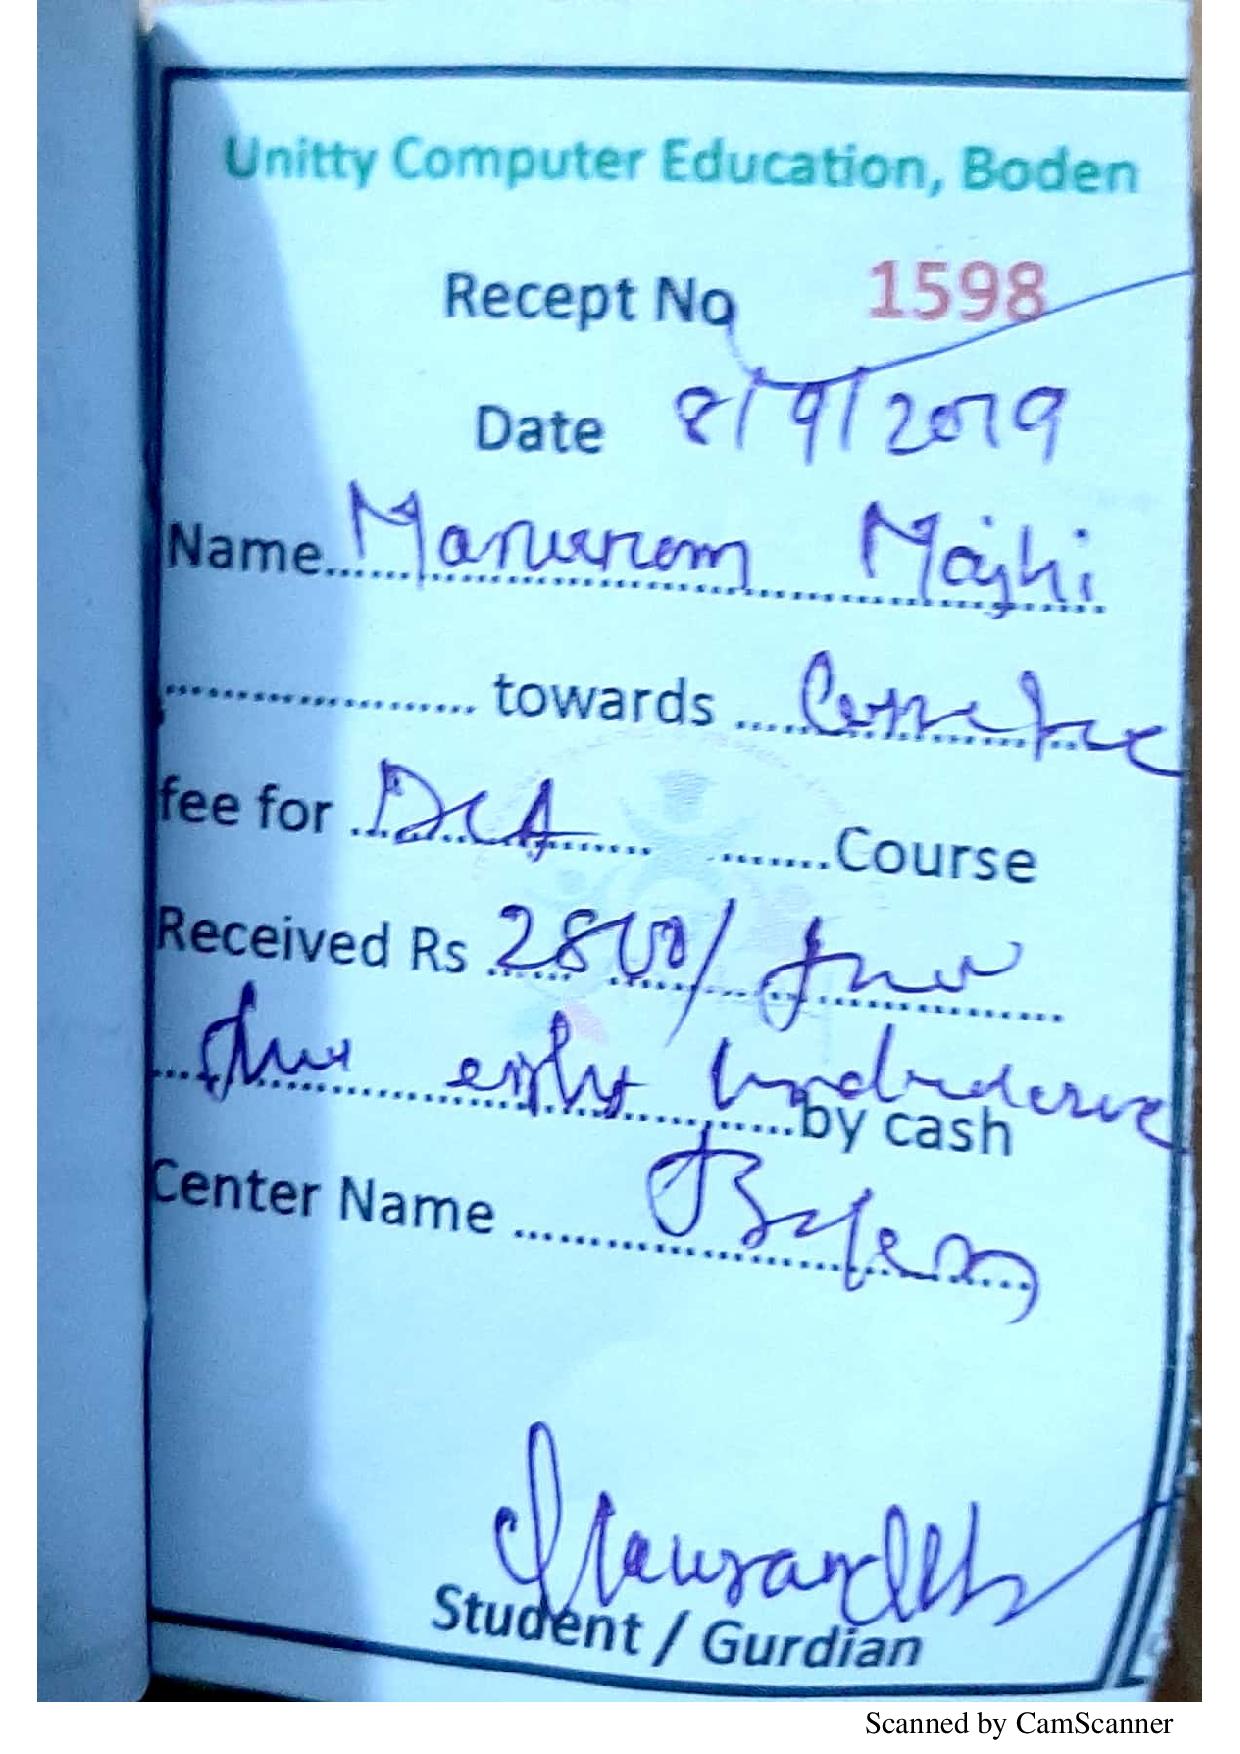 Unitty Computer Education, Boden
Recept No 1598
Date 8/9/2019
Name Manuram Majhi
towards
fee for DCA Course
Received Rs 2800/
eight by cash
Center Name
Student / Gurdian
Scanned by CamScanner